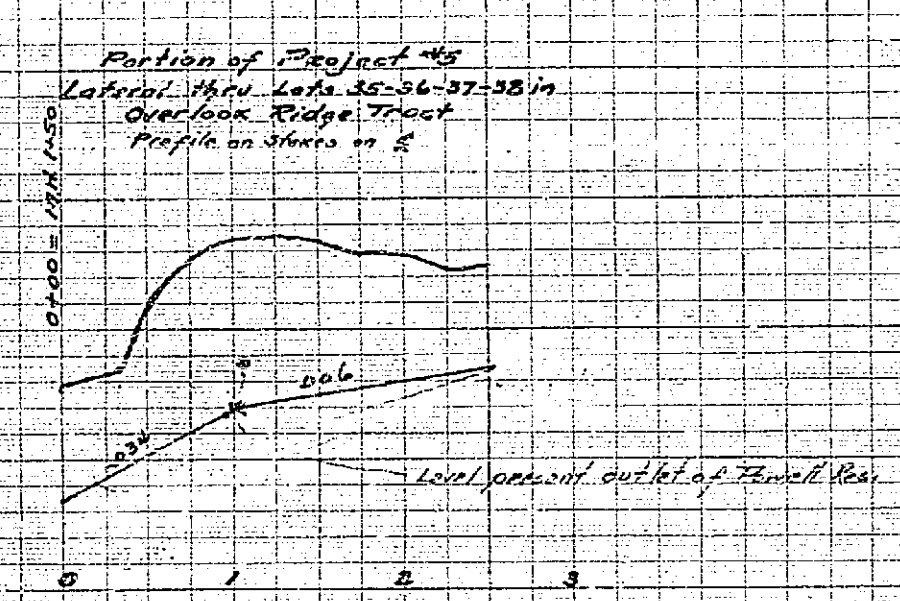 Portion of Project #5
Lateral thru Lots 35-36-37-38 in
Overlook Ridge Tract
Profile on Stakes on ℄
0+00 = M.H. 1+50
.006
.034
Level present outlet of Powell Res.
0 1 2 3